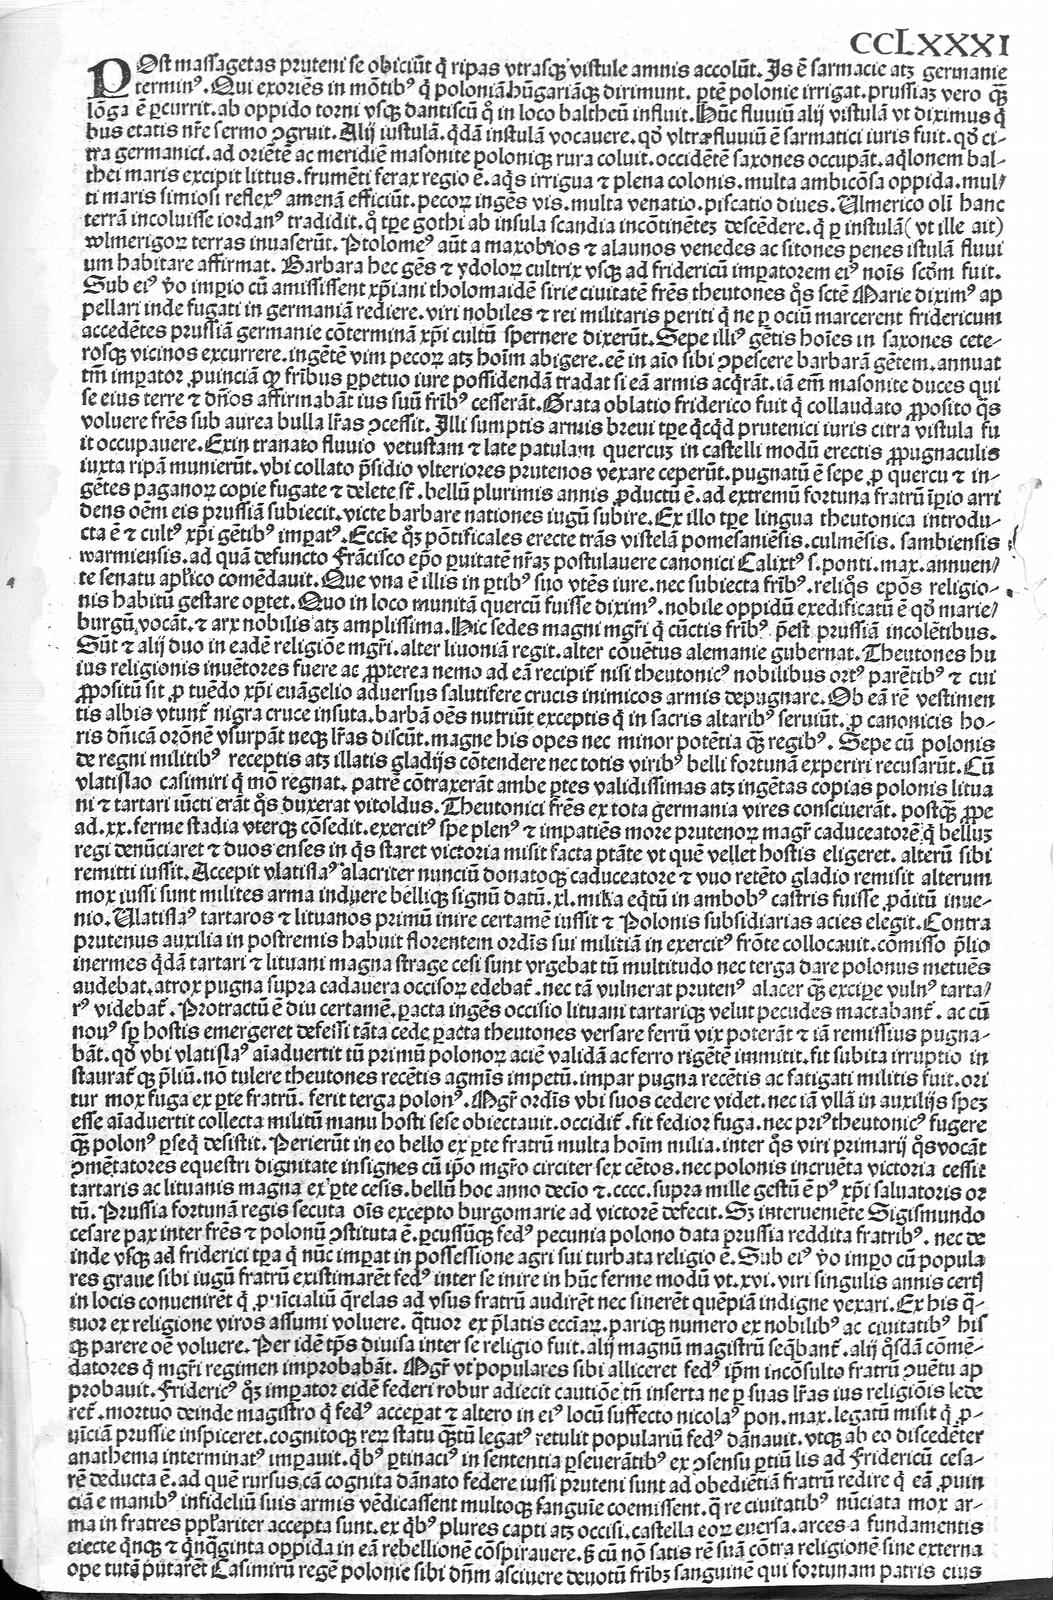 CCLXXXI
POst massagetas pruteni se obiciūt q̄ ripas vtrasq; vistule amnis accolūt. Is ē sarmacie atq; germanie
terminꝰ. Qui exoriēs in mōtibꝰ q̄ poloniā hūgariāq; dirimunt. ꝑtē polonie irrigat. prussiaꝫ vero q̄ꝫ
lōga ē ꝑcurrit. ab oppido torni vsq; dantiscū q̄ in loco baltheū influit. Hūc fluuiū alij vistulā vt diximus q̄
bus etatis nr̄e sermo ꝯgruit. Alij iustulā. q̄dā instulā vocauere. qd̄ vltra fluuiū ē sarmatici iuris fuit. qd̄ ci-
tra germanici. ad oriētē ac meridiē masonite poloniq; rura coluit. occidētē saxones occupāt. aq̄lonem bal-
thei maris excipit littus. frumēti ferax regio ē. aq̄s irrigua ⁊ plena colonis. multa ambicōsa oppida. mul/
ti maris simiosi reflexꝰ amenā efficiūt. pecoꝝ ingēs vis. multa venatio. piscatio diues. Ulmerico oli̅ hanc
terrā incoluisse iordanꝰ tradidit. q̄ tꝑe gothi ab insula scandia incōtinēteꝫ descēdere. q̄ ꝑ instulā (vt ille ait)
wlmerigoꝝ terras inuaserūt. Ptolomeꝰ aūt a maxobios ⁊ alaunos venedes ac sitones penes istulā fluui
um habitare affirmat. Barbara hec gēs ⁊ ydoloꝝ cultrix vsq; ad fridericū imꝑatorem eiꝰ noīs scd̄m fuit.
Sub eiꝰ v̄o imꝑio cū amisissent xp̄iani tholomaidē sirie ciuitatē fr̄es theutones q̄s scte̅ Marie diximꝰ ap
pellari inde fugati in germaniā rediere. viri nobiles ⁊ rei militaris periti q̄ ne ꝑ ociū marcerent fridericum
accedētes prussiā germanie cōterminā xp̄i cultū spernere dixerūt. Sepe illiꝰ gētis hoīes in saxones cete-
rosq; vicinos excurrere. ingētē vim pecoꝝ atq; hoīm abigere. eē in aīo sibi ꝯpescere barbarā gētem. annuat
tm̄ imꝑator ꝓuinciā q̄ꝫ fr̄ibus ꝑpetuo iure possidendā tradat si eā armis acq̄rāt. iā em̄ masonite duces qui
se eius terre ⁊ dn̄os affirmabāt ius suū fr̄ibꝰ cesserāt. Grata oblatio friderico fuit q̄ collaudato ꝓposito q̄s
voluere fr̄es sub aurea bulla lr̄as ꝯcessit. Illi sumptis armis breui tꝑe q̄cq̄d prutenici iuris citra vistula fu
it occupauere. Exin tranato fluuio vetustam ⁊ late patulam quercuꝫ in castelli modū erectis ꝓpugnaculis
iuxta ripā munierūt. vbi collato p̄sidio vlteriores prutenos vexare ceperūt. pugnatū ē sepe ꝓ quercu ⁊ in-
gētes paganoꝝ copie fugate ⁊ delete st̄. bellū plurimis annis ꝓductū ē. ad extremū fortuna fratrū iꝑio arri
dens oēm eis prussiā subiecit. victe barbare nationes iugū subire. Ex illo tꝑe lingua theutonica introdu-
cta ē ⁊ cultꝰ xp̄i gētibꝰ imꝑatꝰ. Eccīe q̄ꝫ pōtificales erecte trās vistelā pomesaniēsis. culmēsis. sambiensis
warmiensis. ad quā defuncto Frācisco ep̄o ꝑuitatē nr̄aꝫ postulauere canonici Calixtꝰ s. ponti. max. annuen/
te senatu apl̄ico comēdauit. Que vna ē illis in ꝑtibꝰ suo vtēs iure. nec subiecta fr̄ibꝰ. reliq̄s ep̄os religio-
nis habitū gestare oꝑtet. Quo in loco munitā quercū fuisse diximꝰ. nobile oppidū exedificatū ē qd̄ marie/
burgū vocāt. ⁊ arx nobilis atq; amplissima. Hic sedes magni mgr̄i q̄ cūctis fr̄ibꝰ p̄est prussiā incolētibus.
Sūt ⁊ alij duo in eadē religiōe mgr̄i. alter liuoniā regit. alter cōuētus alemanie gubernat. Theutones hu
ius religionis inuētores fuere ac ꝓpterea nemo ad eā recipit̄ nisi theutonicꝰ nobilibus ortꝰ parētibꝰ ⁊ cui
ꝓpositū sit ꝓ tuēdo xp̄i euāgelio aduersus salutifere crucis inimicos armis depugnare. Ob eā rē vestimen
tis albis vtunt̄ nigra cruce insuta. barbā oēs nutriūt exceptis q̄ in sacris altaribꝰ seruiūt. ꝓ canonicis ho-
ris dn̄icā orōnē vsurpāt neq; lr̄as discūt. magne his opes nec minor potētia q̄ꝫ regibꝰ. Sepe cū polonis
de regni militibꝰ receptis atꝫ illatis gladijs cōtendere nec totis viribꝰ belli fortunā experiri recusarūt. Cū
vlatislao casimiri q̄ mō regnat. patrē cōtraxerāt ambe ꝑtes validissimas atꝫ ingētas copias polonis litua
ni ⁊ tartari iūcti erāt q̄s duxerat vitoldus. Theutonici fr̄es ex tota germania vires consciuerāt. postq̄ꝫ ꝓpe
ad. xx. ferme stadia vterq; cōsedit. exercitꝰ spe plenꝰ ⁊ impatiēs more prutenoꝝ magr̄ caduceatorē q̄ belluꝫ
regi denūciaret ⁊ duos enses in q̄s staret victoria misit facta ptāte vt quē vellet hostis eligeret. alterū sibi
remitti iussit. Accepit vlatislaꝰ alacriter nunciū donatoq; caduceatore ⁊ vno retēto gladio remisit alterum
mox iussi sunt milites arma induere belliq; signū datū. xl. milia eq̄tū in ambobꝰ castris fuisse ꝓditū inue-
nio. Ulatislaꝰ tartaros ⁊ lituanos primū inire certamē iussit ⁊ Polonis subsidiarias acies elegit. Contra
prutenus auxilia in postremis habuit florentem ordīs sui militiā in exercitꝰ frōte collocauit. cōmisso p̄lio
inermes q̄dā tartari ⁊ lituani magna strage cesi sunt vrgebat tū multitudo nec terga dare polonus metuēs
audebat. atrox pugna supra cadauera occisoꝝ edebat̄. nec tā vulnerat prutenꝰ alacer q̄ꝫ exciꝑe vulnꝰ tarta/
rꝰ videbat̄. Protractū ē diu certamē. ꝑacta ingēs occisio lituani tartariq; velut pecudes mactabant̄. ac cū
nouꝰ sꝑ hostis emergeret defessi tāta cede ꝑacta theutones versare ferrū vix poterāt ⁊ iā remissius pugna-
bāt. qd̄ vbi vlatislaꝰ aīaduertit tū primū polonoꝝ aciē validā ac ferro rigētē immitit. fit subita irruptio in
staurat̄ q; p̄liū. nō tulere theutones recētis agmīs impetū. impar pugna recētis ac fatigati militis fuit. ori
tur mox fuga ex ꝑte fratrū. ferit terga polonꝰ. Mgr̄ ordīs vbi suos cedere videt. nec iā vllā in auxilijs speꝫ
esse aīaduertit collecta militū manu hosti sese obiectauit. occidit̄. fit fedior fuga. nec priꝰ theutonicꝰ fugere
q̄ꝫ polonꝰ ꝑseq̄ desistit. Perierūt in eo bello ex ꝑte fratrū multa hoīm milia. inter q̄s viri primarij q̄s vocāt
ꝯmētatores equestri dignitate insignes cū ip̄o mgr̄o circiter sex cētos. nec polonis incruēta victoria cessit
tartaris ac lituanis magna ex ꝑte cesis. bellū hoc anno decīo ⁊. cccc. supra mille gestū ē pꝰ xp̄i saluatoris or
tū. Prussia fortunā regis secuta oīs excepto burgomarie ad victorē defecit. Sꝫ interueniēte Sigismundo
cesare pax inter fr̄es ⁊ polonū ꝯstituta ē. ꝑcussūq; fedꝰ pecunia polono data prussia reddita fratribꝰ. nec de
inde vsq; ad friderici tꝑa q̄ nūc imꝑat in possessione agri sui turbata religio ē. Sub eiꝰ v̄o imꝑo cū popula
res graue sibi iugū fratrū existimarēt fedꝰ inter se inire in hūc ferme modū vt. xvi. viri singulis annis certꝭ
in locis conuenirēt q̄ ꝓuincialiū q̄relas ad vsus fratrū audirēt nec sinerēt quēpiā indigne vexari. Ex his q̄-
tuor ex religione viros assumi voluere. q̄tuor ex p̄latis ecc̄iaꝝ. pariq; numero ex nobilibꝰ ac ciuitatibꝰ his
q; parere oē voluere. Per idē tp̄s diuisa inter se religio fuit. alij magnū magistrū seq̄bant̄. alij q̄sdā comē-
datores q̄ mgr̄i regimen improbabāt. Mgr̄ vt populares sibi alliceret fedꝰ ip̄m incōsulto fratrū ꝯuētu ap
probauit. Fridericꝰ q̄ꝫ imꝑator eidē federi robur adiecit cautiōe tn̄ inserta ne ꝑ suas lr̄as ius religiōis lede
ret̄. mortuo deinde magistro q̄ fedꝰ acceꝑat ⁊ altero in eiꝰ locū suffecto nicolaꝰ pon. max. legatū misit q̄ ꝓ-
uīciā prussie inspiceret. cognitoq; reꝝ statu q̄ꝫtū legatꝰ retulit populariū fedꝰ dānauit. vtq; ab eo discedēter
anathema interminatꝰ imꝑauit. q̄bꝰ ꝑtinaciꝰ in sententia ꝑseuerātibꝰ ex ꝯsensu ꝑtiū lis ad Fridericū cesa-
rē deducta ē. ad quē rursus cā cognita dānato federe iussi pruteni sunt ad obediētiā fratrū redire q̄ eā ꝓuin
ciā e manibꝰ infideliū suis armis vēdicassent multoq; sanguīe coemissent. q̄ re ciuitatibꝰ nūciata mox ar-
ma in fratres ppl̄ariter accepta sunt. ex q̄bꝰ plures capti atꝫ occisi. castella eoꝝ euersa. arces a fundamentis
eiecte q̄nq; ⁊ q̄nq̄ginta oppida in eā rebellionē cōspirauere. s̄ cū nō satis rē suā cōtra religionē sine externa
ope tutā putarēt Casimirū regē polonie sibi dn̄m asciuere deuotū fr̄ibꝫ sanguinē qui fortunam patris eius